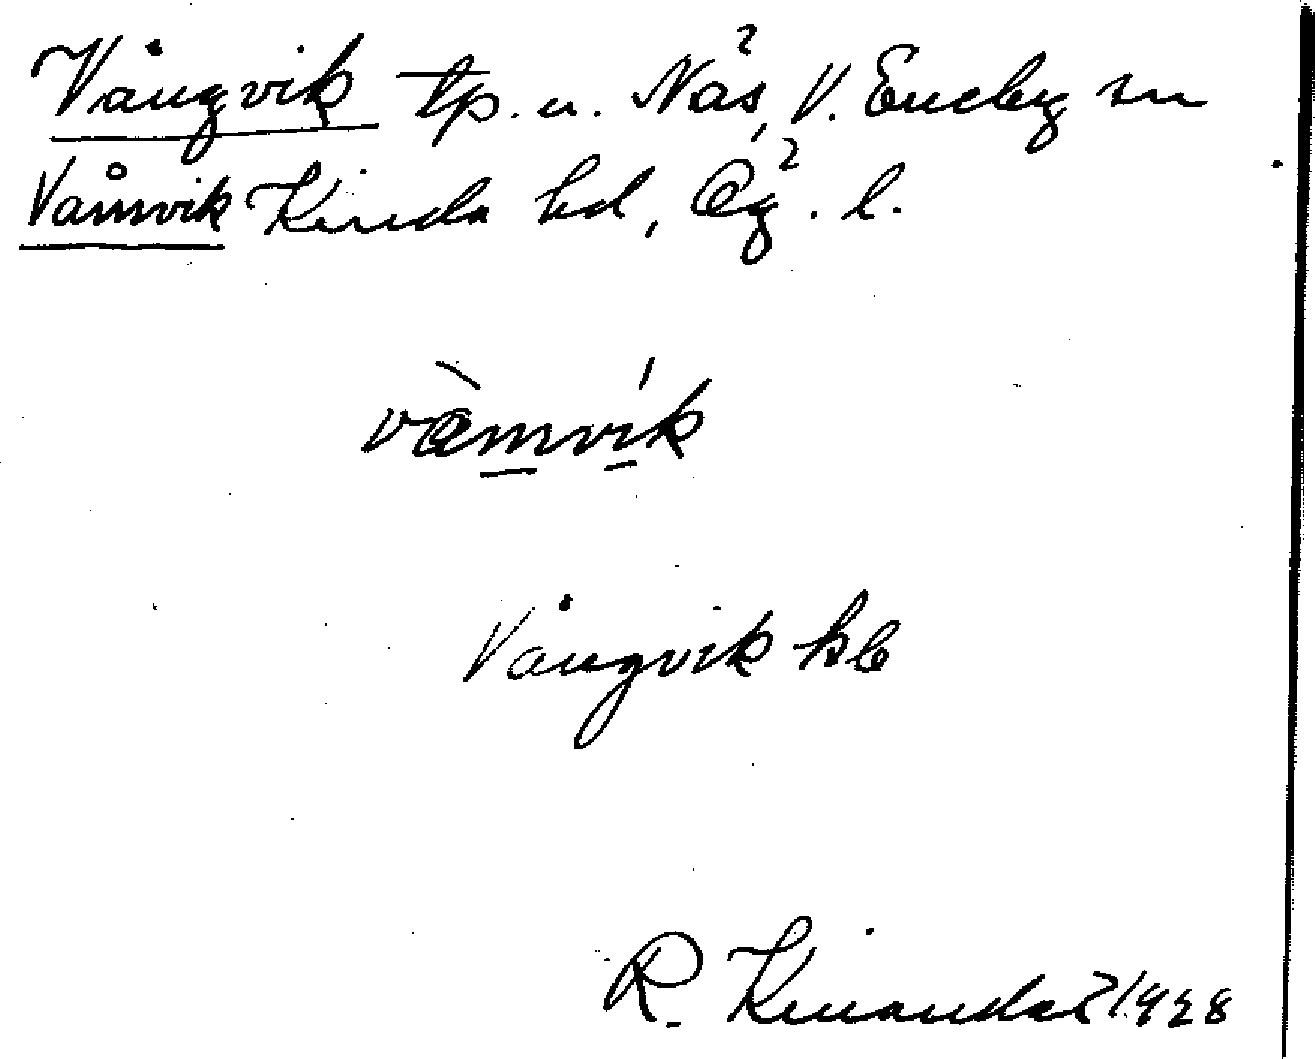 Vångvik tp. u. Näs, V. Eneby sn
Våmvik Kinda hd, Ög. l.
vàmvík
Vångvik kb
R. Kinander 1928